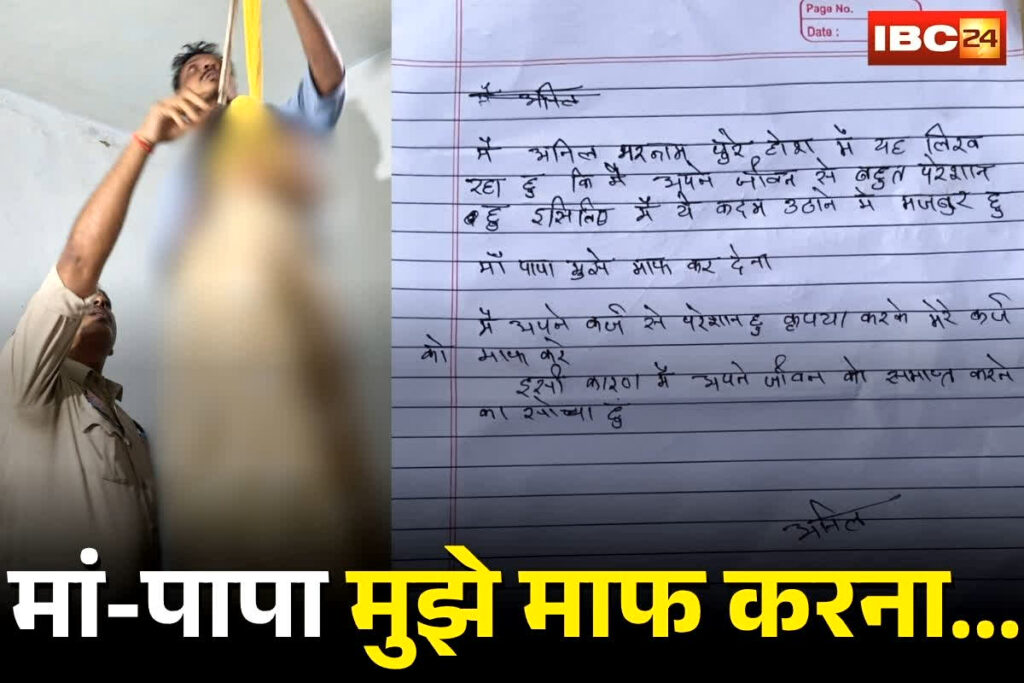 Page No.
Date :
IBC24
मै अनिल
मै अनिल मरनाम् पुरे होश में यह लिख
रहा हु कि मै अपने जीवन से बहुत परेशान
हु इसिलिए मै ये कदम उठाने मे मजबुर हु
माँ पापा मुझे माफ कर देना
मै अपने कर्ज से परेशान हु कृपया करके मेरे कर्ज
को माफ करे
इसी कारण मै अपने जीवन को समाप्त करने
का सोच्या हुं
अनिल
मां-पापा मुझे माफ करना...